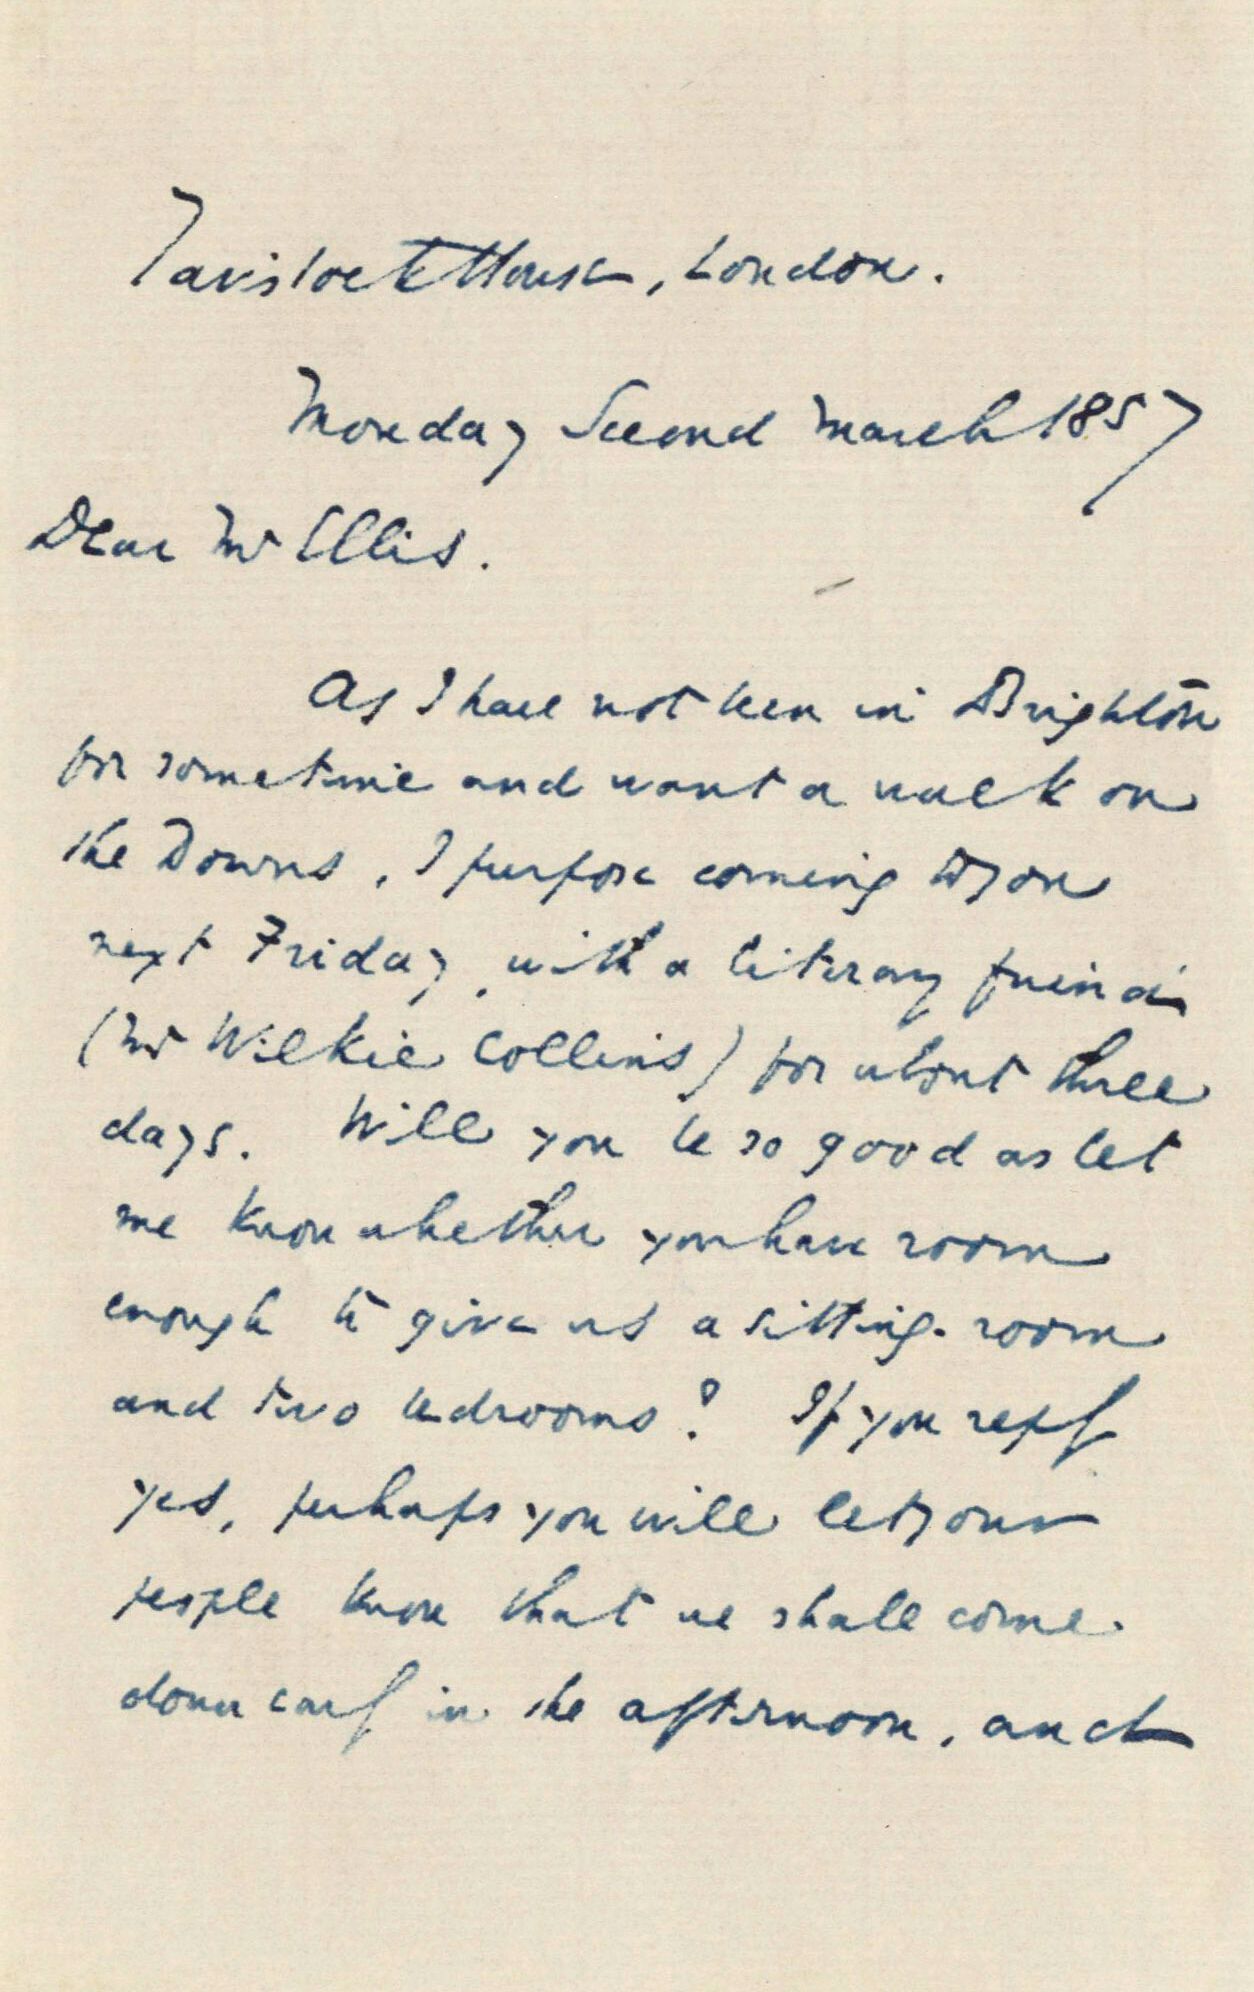 Tavistock House, London.
Monday Second March 1857
Dear Mr Ellis.
As I have not been in Brighton
for sometime and want a walk on
the Downs, I purpose coming to you
next Friday, with a literary friend
(Mr Wilkie Collins) for about three
days. Will you be so good as let
me know whether you have room
enough to give us a sitting-room
and two bedrooms? If you reply
yes, perhaps you will let your
people know that we shall come
down early in the afternoon, and